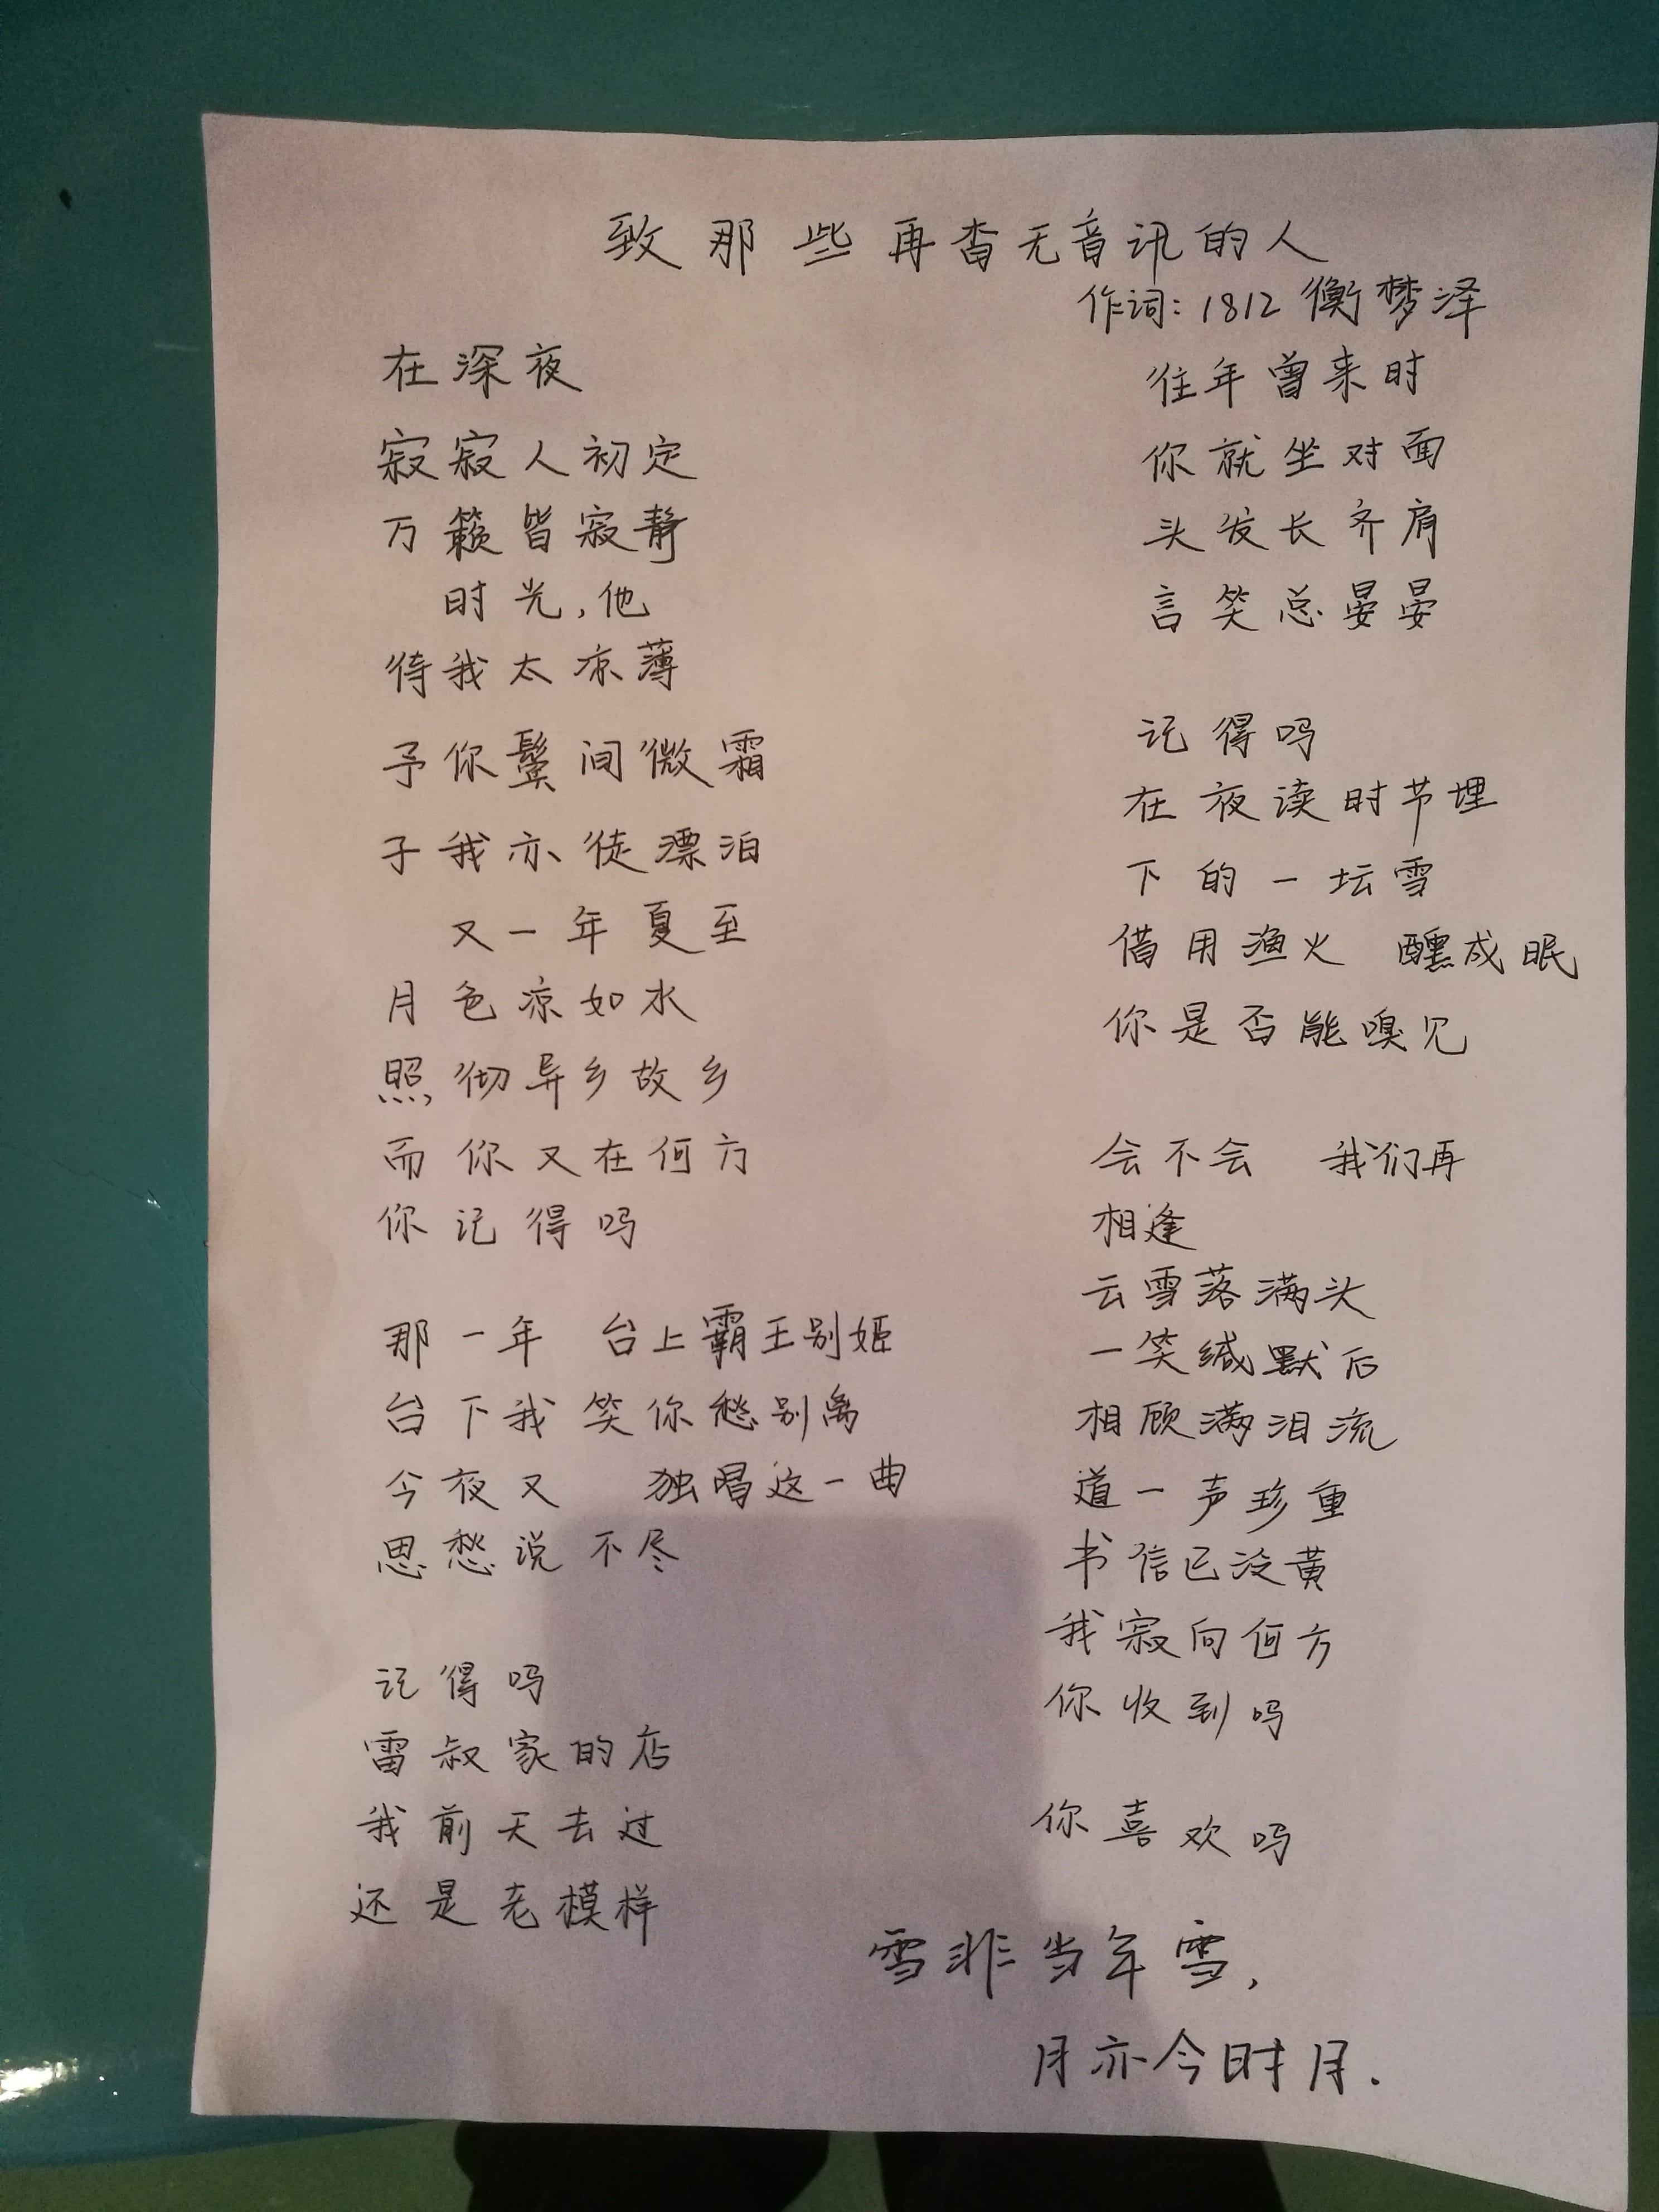 致那些再杳无音讯的人
作词：1812 衡梦泽
在深夜
寂寂人初定
万籁皆寂静
时光，他
待我太凉薄
予你鬓间微霜
予我亦徒漂泊
又一年夏至
月色凉如水
照彻异乡故乡
而你又在何方
你记得吗
那一年 台上霸王别姬
台下我笑你愁别离
今夜又 独唱这一曲
思愁说不尽
记得吗
雷叔家的店
我前天去过
还是老模样
往年曾来时
你就坐对面
头发长齐肩
言笑总晏晏
记得吗
在夜读时节埋
下的一坛雪
借用渔火 醺成眠
你是否能嗅见
会不会 我们再
相逢
云雪落满头
一笑缄默后
相顾满泪流
道一声珍重
书信已泛黄
我寂向何方
你收到吗
你喜欢吗
雪非当年雪，
月亦今时月.